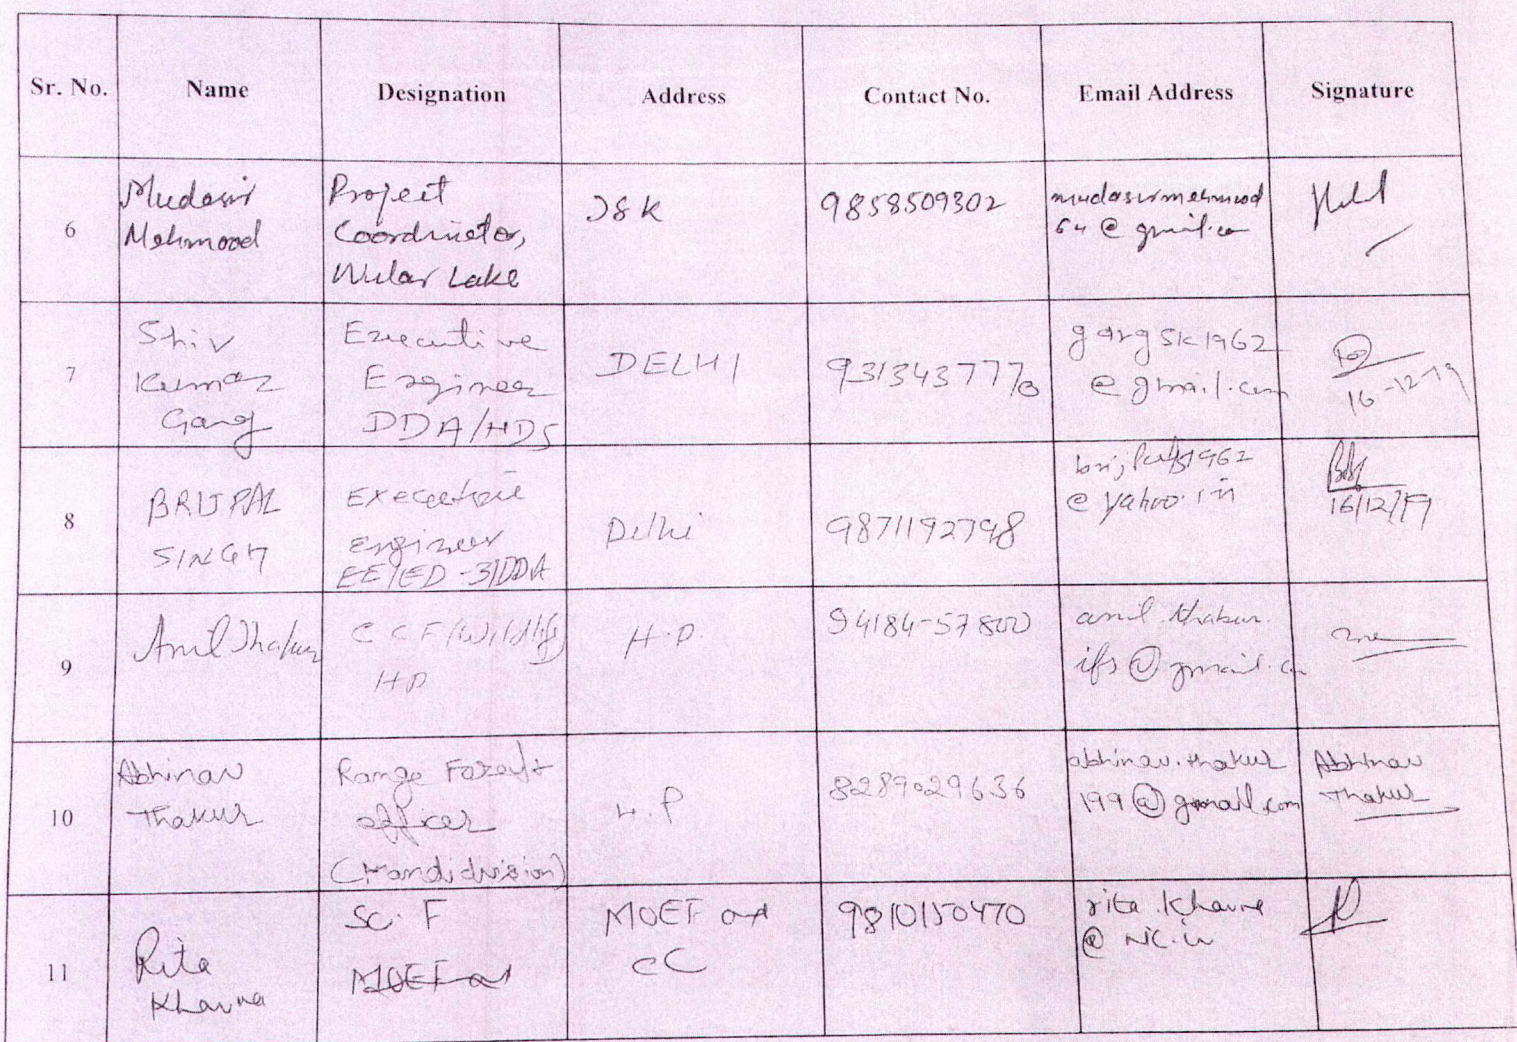 Sr. No. Name Designation Address Contact No. Email Address Signature
6 Mudasir Mehmood Project Coordinator, Wular Lake J&K 9858509302 mudasirmehmood64@gmail.co
7 Shiv Kumar Garg Executive Engineer DDA/HDS DELHI 9313437770 gargsk1962@gmail.com 16-12-19
8 BRIJPAL SINGH Executive engineer EE/ED-3/DDA Delhi 9871192798 @yahoo.in 16/12/19
9 Anil Thakur CCF/Wildlife HP H.P. 94184-57800 anil.thakur.ifs@gmail.co
10 Abhinav Thakur Range Forest officer (Mandi division) H.P 8289029636 abhinav.thakur199@gmail.com Abhinav Thakur
11 Rita Khanna Sc. F MOEF and MOEF and CC 9810150470 rita.khanna@nic.in